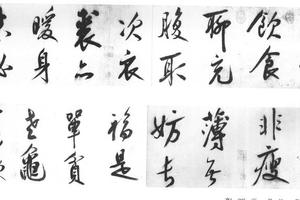 飲食
聊充
腹取
次衣
裘亦
暖身
必
非瘦
薄無
妨長
福是
單貧
老龜